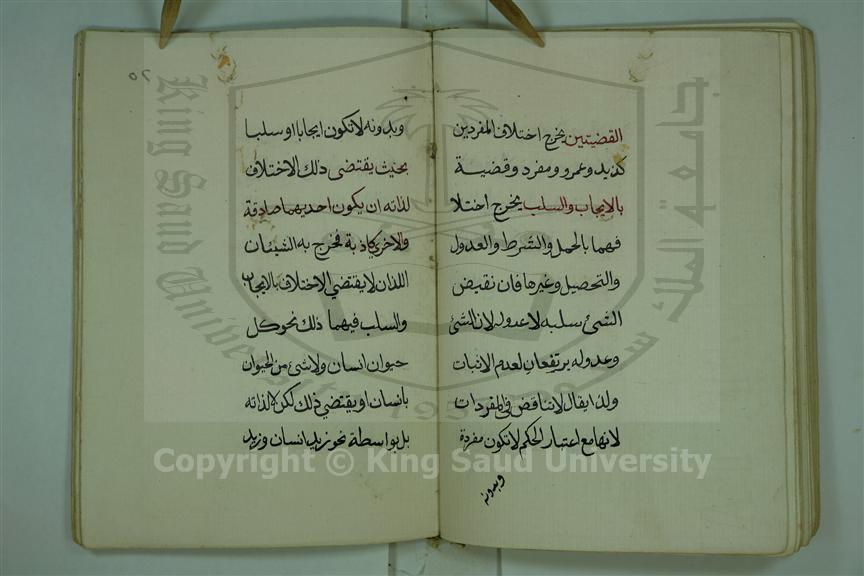 القضيتين يخرج اختلاف المفردين
كزيد وعمرو ومفرد وقضية
بالايجاب والسلب يخرج اختلا
فهما بالحمل والشرط والعدول
والتحصيل وغيرها فان نقيض
الشئ سلبه لا عدوله لان الشئ
وعدوله يرتفعان لعدم الاثبات
ولذا يقال لا تناقض في المفردات
لانها مع اعتبار الحكم لا تكون مفردة
وبدونه
٥٢
وبدونه لا تكون ايجابا او سلبا
بحيث يقتضى ذلك الاختلاف
لذاته ان يكون احديهما صادقة
والاخرى كاذبة فخرج به الشيئان
اللذان لا يقتضي الاختلاف بالايجاب
والسلب فيهما ذلك نحو كل
حيوان انسان ولا شئ من الحيوان
بانسان او يقتضي ذلك لكن لا لذاته
بل بواسطة نحو زيد انسان وزيد
جامعة الملك سعود
King Saud University
1957
Copyright © King Saud University